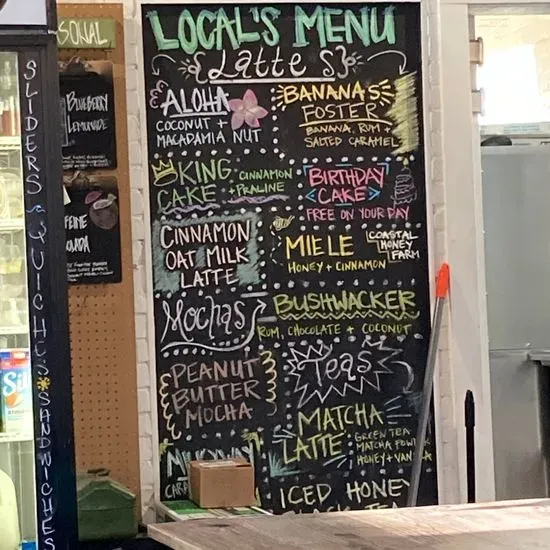 LOCAL'S MENU
{Latte's}
ALOHA
COCONUT +
MACADAMIA NUT
BANANAS
FOSTER
BANANA, RUM +
SALTED CARAMEL
KING
CAKE
CINNAMON
+ PRALINE
BIRTHDAY
CAKE
FREE ON YOUR DAY
CINNAMON
OAT MILK
LATTE
MIELE
HONEY + CINNAMON
COASTAL
HONEY
FARM
Mochas
BUSHWACKER
RUM, CHOCOLATE + COCONUT
PEANUT
BUTTER
MOCHA
Teas
MATCHA
LATTE
GREEN TEA
MATCHA
HONEY +
ICED HONEY
SONAL
BLUEBERRY
LEMONADE
SLIDERS ~ QUICHES SANDWICHES
Sil